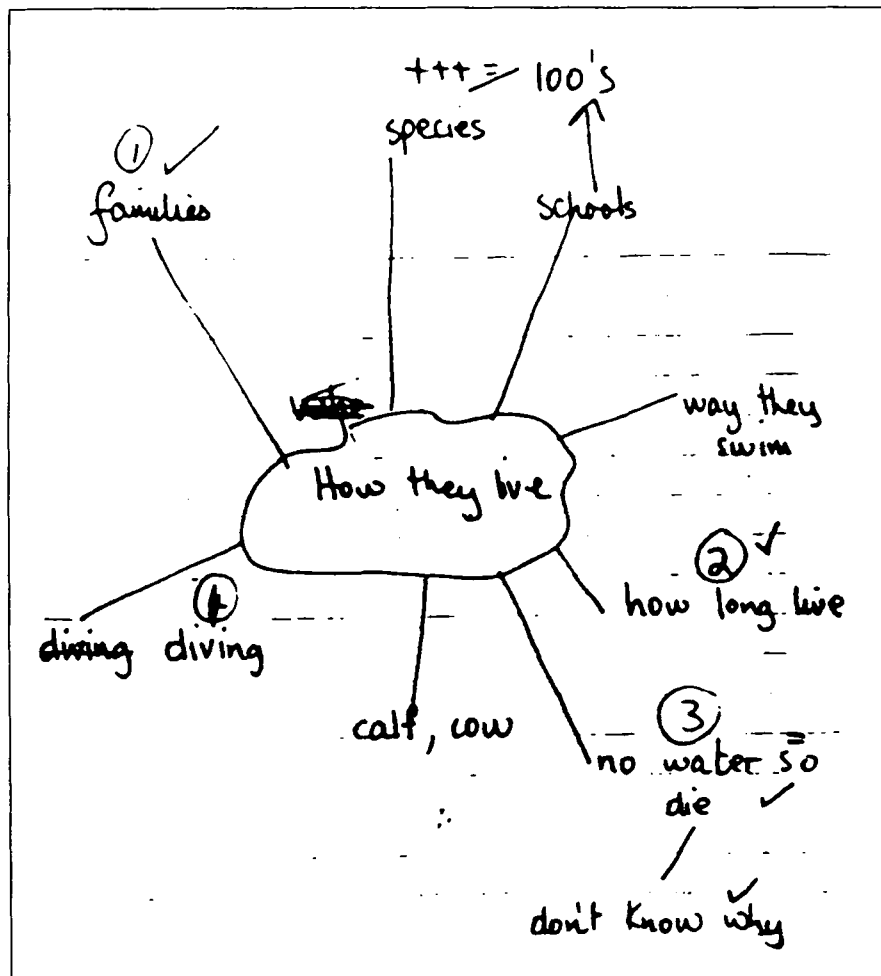 +++ = 100's
species
① ✓
families
schools
way they
swim
How they live
② ✓
how long live
④
diving diving
calf, cow
③
no water so
die ✓
don't know why ✓